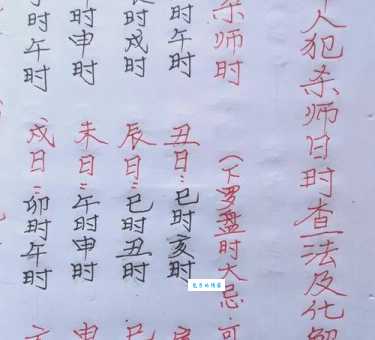 人犯杀师日时查法及化解
杀师时（下罗盘时大忌·可
时午时
丑日：巳时亥时
时戌时
辰日：巳时丑时
时申时
未日：午时申时
时午时
戌日：卯时午时